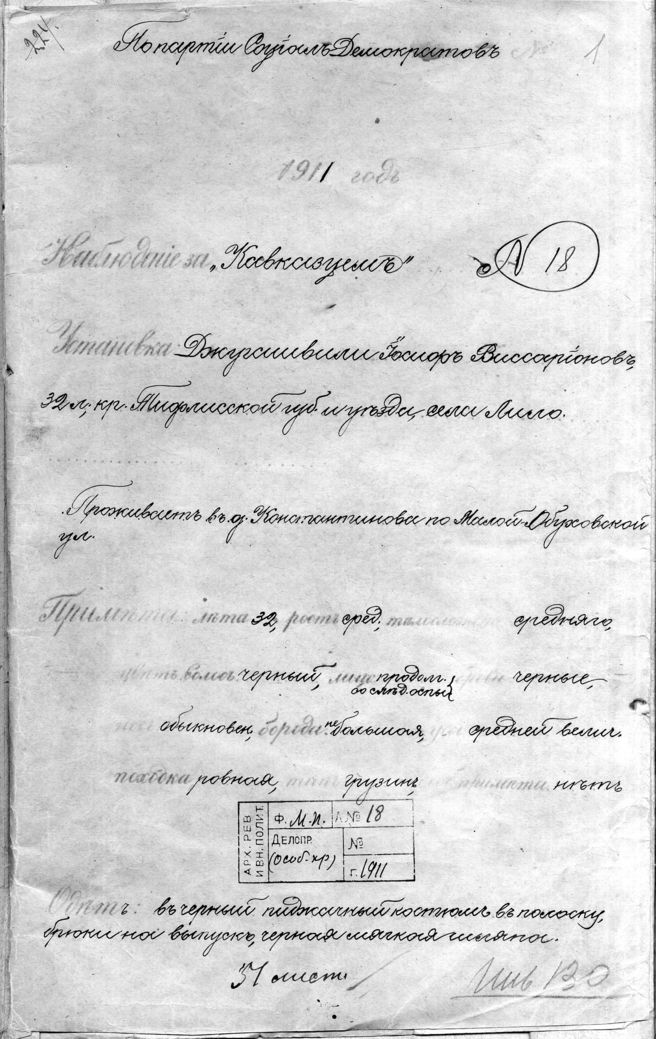 224.
По партіи Соціалъ Демократовъ № 1
1911 годъ
Наблюденіе за „Кавказцемъ"
А 18
Установка: Джугашвили Іосифъ Виссаріоновъ,
32 л., кр. Тифлисской губ. и уѣзда, села Лило.
Проживаетъ въ д. Константинова по Малой Обуховской
ул.
Примѣты: лѣта 32, ростъ сред., тѣлосложен. средняго,
цвѣтъ волосъ черный, лицо продолг., брови черные,
со слѣд. оспы
обыкновен, борода не большая, средней велич.
походка ровная, типъ грузин., примѣты нѣтъ
АРХ. РЕВ.
И ВН. ПОЛИТ.
Ф. М.П. А № 18
ДЕЛОПР. №
(особ. хр) г. 1911
Одѣтъ: въ черный пиджачный костюмъ въ полоску,
брюки на выпускъ, черная мягкая шляпа.
31 лист.